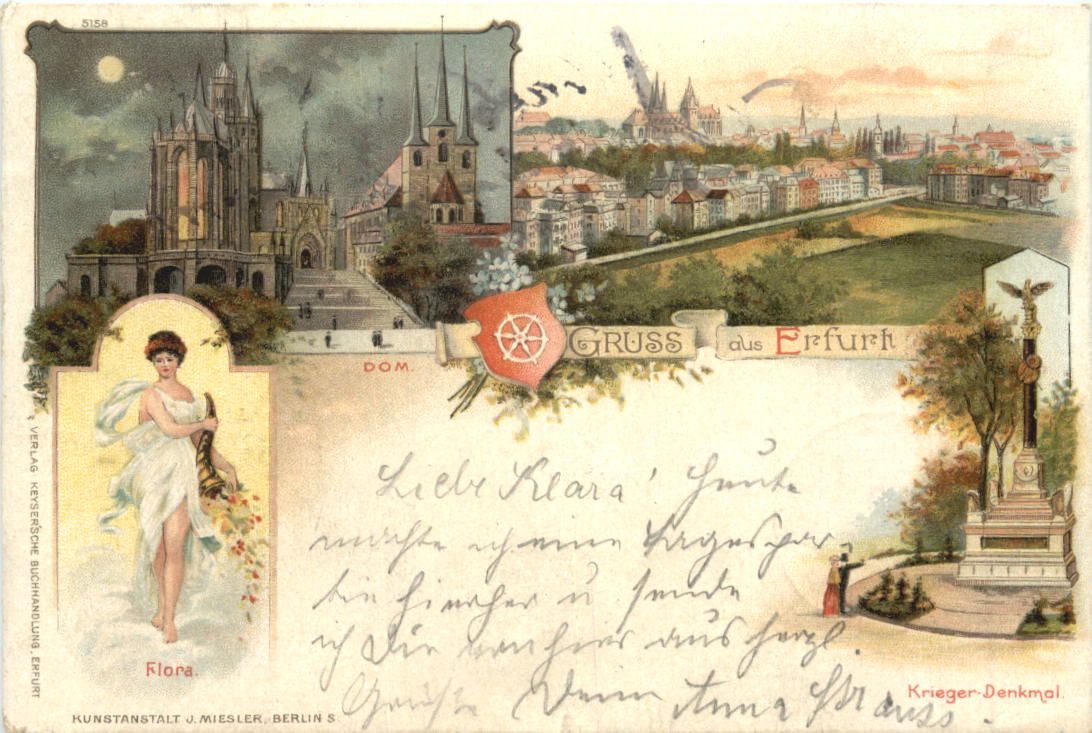 5158
DOM.
GRUSS aus Erfurt
Flora.
Krieger-Denkmal.
Liebe Klara! Heute
machte ich eine Tagespar-
tie hierher u sende
ich Dir von hier aus herzl.
Grüße Deine Anna Strauss.
VERLAG KEYSER'SCHE BUCHHANDLUNG, ERFURT
KUNSTANSTALT J. MIESLER, BERLIN S